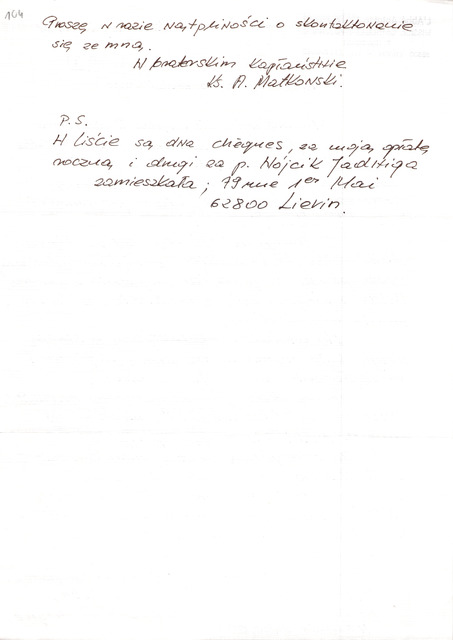 104
Proszę w razie wątpliwości o skontaktowanie
się ze mną.
W braterskim kapłaństwie
ks. A. Matkowski.
P.S.
W liście są dwa chèques, za moją opłatę
roczną i drugi za p. Wójcik Jadwiga
zamieszkała; 79 rue 1er Mai
62800 Lievin.